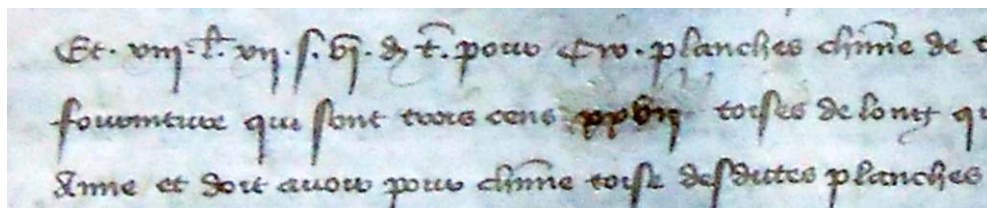 Et · viij · l · vij · s · vj · d t · pour Cix · planches chune de t
fourniture qui sont trois cens xxvij toises de long qu
Anne et doit avoir pour chune toise desdittes planches